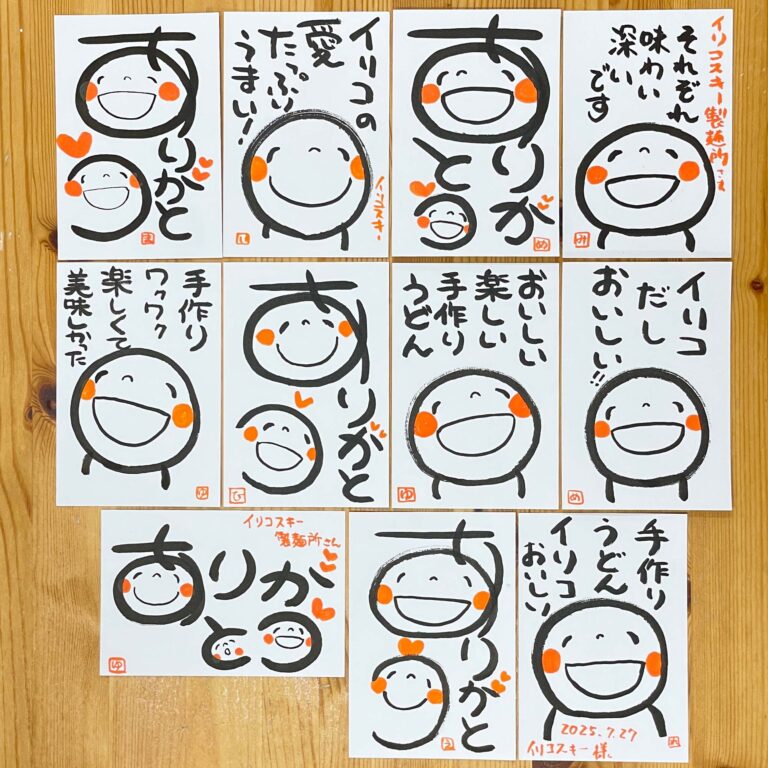 ありがとう
ま
イリコの
愛
たっぷり
うまい!
イリコスキー
し
ありがとう
め
イリコスキー製麺所さま
それぞれ
味わい
深い
です
み
手作り
ワクワク
楽しくて
美味しかった
ゆ
ありがとう
ひ
おいしい
楽しい
手作り
うどん
ゆ
イリコ
だし
おいしい!!
め
イリコスキー
製麺所さん
ありがとう
ゆ
ありがとう
手作り
うどん
イリコ
おいしい
2025.7.27
イリコスキー様、
れ